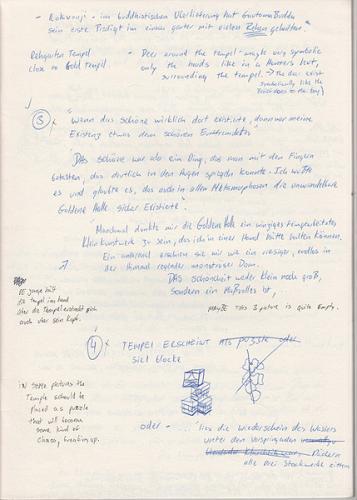 - Rokuonji - in buddhistischen Überlieferung hat Gautama Buddha
sein erste Predigt in einem garten mit vielen Rehen gehalten."
Rehgarten Tempel
close to Gold tempel.
- Deer around the tempel - maybe very symbolic
only the heads like in a Hunters hut,
surrounding the tempel. → the deer exist
symbolically like the
③ "Wenn das schöne wirklich dort existierte, dann war meine
Existenz etwas dem schönen Entfremdetes"
"DAS schöne war also ein Ding, das man mit den Fingern
betasten, das deutlich in den Augen spiegeln konnte. Ich wußte
es und glaubte es, das auch in allen Metamorphosen die unwandelbare
Goldene Halle sicher Existierte".
Manchmal dünkte mir die Goldene Halle ein winziges feingearbeitetes
Kleinkunstwerk zu sein, das ich in einer Hand hätte halten können.
Ein andermal erschien sie mir wie ein riesiger, endlos in
den Himmel ragender monströser Dom.
DAS schönheit weder klein noch groß,
sondern ein Maßvolles ist,
der Tempel im hand
aber die Tempel erstreckt sich
auch über sein Kopf.
MAYBE this 3 picture is quite Empty.
④ TEMPEL ERSCHEINT Als puzzle oder
viel blocke
in some pictures the
Temple should be
placed as a puzzle
that will become
some kind of
chaos, breaking up.
oder - ... "ließ die wiederschein des Wassers
unter den vorspringenden
Dächern
alle drei Stockwerke zittern